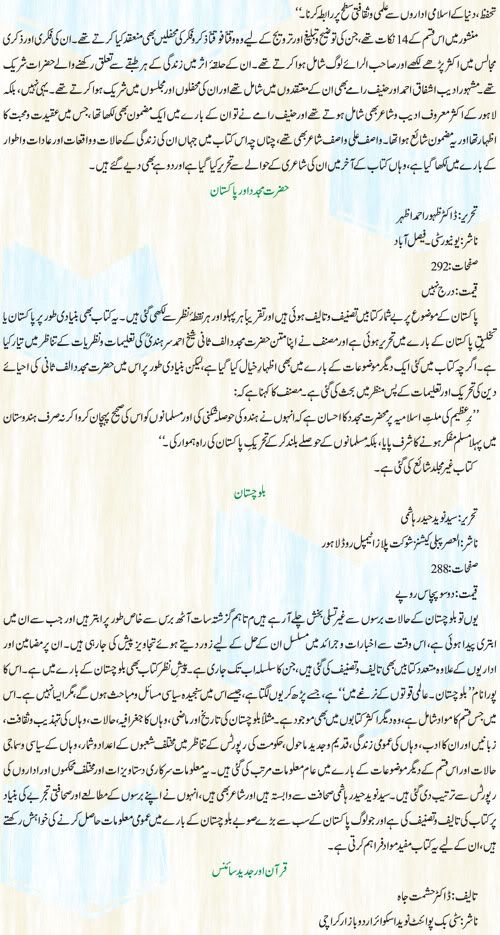 تحفظ، دنیا کے اسلامی اداروں سے علمی و ثقافتی سطح پر رابطہ کرنا۔‘‘
منشور میں اس قسم کے 14 نکات تھے، جن کی توضیح و تبلیغ اور ترویج کے لیے وہ وقتاً فوقتاً ذکر و فکر کی محفلیں بھی منعقد کیا کرتے تھے۔ ان کی فکری اور ذکری
مجالس میں اکثر پڑھے لکھے اور صاحب الرائے لوگ شامل ہوا کرتے تھے۔ ان کے حلقۂ اثر میں زندگی کے ہر طبقے سے تعلق رکھنے والے حضرات شریک
تھے۔ مشہور ادیب اشفاق احمد اور حنیف رامے بھی ان کے معتقدوں میں شامل تھے اور ان کی محفلوں اور مجلسوں میں شریک ہوا کرتے تھے۔ یہی نہیں، بلکہ
لاہور کے اکثر معروف ادیب و شاعر بھی شامل ہوتے تھے اور حنیف رامے نے تو ان کے بارے میں ایک مضمون بھی لکھا تھا، جس میں عقیدت و محبت کا
اظہار تھا اور یہ مضمون شائع ہوا تھا۔ واصف علی واصف شاعر بھی تھے، چناں چہ اس کتاب میں جہاں ان کی زندگی کے حالات و واقعات اور عادات و اطوار
کے بارے میں لکھا گیا ہے، وہاں کتاب کے آخر میں ان کی شاعری کے حوالے سے تحریر کیا گیا ہے اور دوہے بھی دیے گئے ہیں۔
حضرت مجدد اور پاکستان
تحریر: ڈاکٹر ظہور احمد اظہر
ناشر: یونیورسٹی۔ فیصل آباد
صفحات: 292
قیمت: درج نہیں
پاکستان کے موضوع پر بے شمار کتابیں تصنیف و تالیف ہوئی ہیں اور تقریباً ہر پہلو اور ہر نقطۂ نظر سے لکھی گئی ہیں۔ یہ کتاب بھی بنیادی طور پر پاکستان یا
تخلیق پاکستان کے بارے میں تحریر ہوئی ہے اور مصنف نے اپنا متن حضرت مجدد الف ثانی شیخ احمد سرہندیؒ کی تعلیمات و نظریات کے تناظر میں تیار کیا
ہے۔ اگرچہ کتاب میں کئی ایک دیگر موضوعات کے بارے میں بھی اظہار خیال کیا گیا ہے، لیکن بنیادی طور پر اس میں حضرت مجدد الف ثانی کی احیائے
دین کی تحریک اور تعلیمات کے پس منظر میں بحث کی گئی ہے۔ مصنف کا کہنا ہے کہ:
’’برِعظیم کی ملتِ اسلامیہ پر حضرت مجدد کا احسان ہے کہ انہوں نے ہندو کی حوصلہ شکنی کی اور مسلمانوں کو اس کی صحیح پہچان کروا کر نہ صرف ہندوستان
میں پہلا مسلم مفکر ہونے کا شرف پایا، بلکہ مسلمانوں کے حوصلے بلند کر کے تحریکِ پاکستان کی راہ ہموار کی۔‘‘
کتاب غیر مجلد شائع کی گئی ہے۔
بلوچستان
تحریر: سید نوید حیدر ہاشمی
ناشر: العصر پبلی کیشنز شوکت پلازا ٹیمپل روڈ لاہور
صفحات: 288
قیمت: دو سو پچاس روپے
یوں تو بلوچستان کے حالات برسوں سے غیر تسلی بخش چلے آ رہے ہیں تاہم گزشتہ سات آٹھ برس سے خاص طور پر ابتر ہیں اور جب سے ان میں
ابتری پیدا ہوئی ہے، اس وقت سے اخبارات و جرائد میں مسلسل ان کے حل کے لیے زور دیتے ہوئے تجاویز پیش کی جا رہی ہیں۔ ان پر مضامین اور
اداریوں کے علاوہ متعدد کتابیں بھی تالیف و تصنیف کی گئی ہیں، جن کا سلسلہ اب تک جاری ہے۔ پیشِ نظر کتاب بھی بلوچستان کے بارے میں ہے۔ اس کا
پورا نام ’’بلوچستان۔ عالمی قوتوں کے نرغے میں‘‘ ہے، جسے پڑھ کر یوں لگتا ہے، جیسے اس میں سنجیدہ سیاسی مسائل و مباحث ہوں گے، مگر ایسا نہیں ہے۔ اس
میں جس قسم کا مواد شامل ہے، وہ دیگر اکثر کتابوں میں بھی موجود ہے۔ مثلاً بلوچستان کی تاریخ اور ماضی، وہاں کا جغرافیہ، حالات، وہاں کی تہذیب و ثقافت،
زبانیں اور ان کا ادب، وہاں کی عمومی زندگی، قدیم و جدید ماحول، حکومت کی رپورٹس کے تناظر میں مختلف شعبوں کے اعداد و شمار، وہاں کے سیاسی و سماجی
حالات اور اس قسم کے دیگر موضوعات کے بارے میں عام معلومات مرتب کی گئی ہیں۔ یہ معلومات سرکاری دستاویزات اور مختلف محکموں اور اداروں کی
رپورٹس سے ترتیب دی گئی ہیں۔ سید نوید حیدر ہاشمی صحافت سے وابستہ ہیں اور شاعر بھی ہیں، انہوں نے اپنے برسوں کے مطالعے اور صحافتی تجربے کی بنیاد
پر کتاب کی تالیف و تصنیف کی ہے اور جو لوگ پاکستان کے سب سے بڑے صوبے بلوچستان کے بارے میں عمومی معلومات حاصل کرنے کی خواہش رکھتے
ہیں، ان کے لیے یہ کتاب مفید مواد فراہم کرتی ہے۔
قرآن اور جدید سائنس
تالیف: ڈاکٹر حشمت جاہ
ناشر: سٹی بک پوائنٹ نوید اسکوائر اردو بازار کراچی